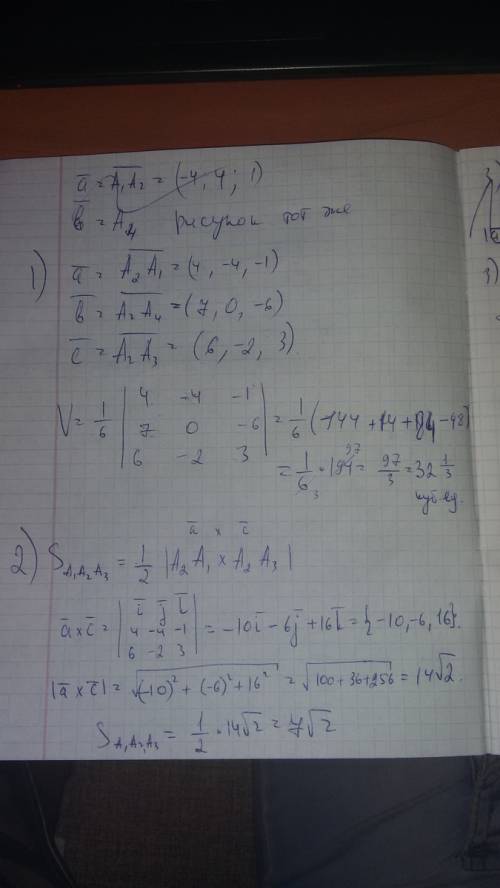 a̅ = A̅₁A̅₂ = (-4, 4; 1)
b̅ = A₄ рисунок тот же
1) a̅ = A̅₂A̅₁ = (4, -4, -1)
b̅ = A̅₂A̅₄ = (7, 0, -6)
c̅ = A̅₂A̅₃ = (6, -2, 3)
V = 1/6 | 4 -4 -1 | 7 0 -6 | 6 -2 3 | = 1/6 (144 + 14 + 84 - 48)
= 1/6 · 194 = 97/3 = 32 1/3
куб ед.
a̅ × c̅
2) S A₁A₂A₃ = 1/2 |A₂A₁ × A₂A₃|
a̅ × c̅ = | i̅ j̅ k̅ | 4 -4 -1 | 6 -2 3 | = -10i̅ - 6j̅ + 16k̅ = {-10, -6, 16}.
|a̅ × c̅| = √((-10)² + (-6)² + 16²) = √(100+36+256) = 14√2.
S A₁A₂A₃ = 1/2 · 14√2 = 7√2
3)